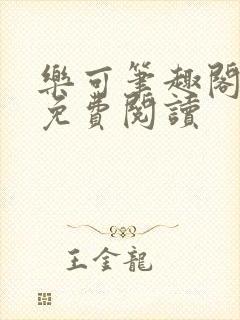 樂可筆趣閣
免費閱讀
王金龍